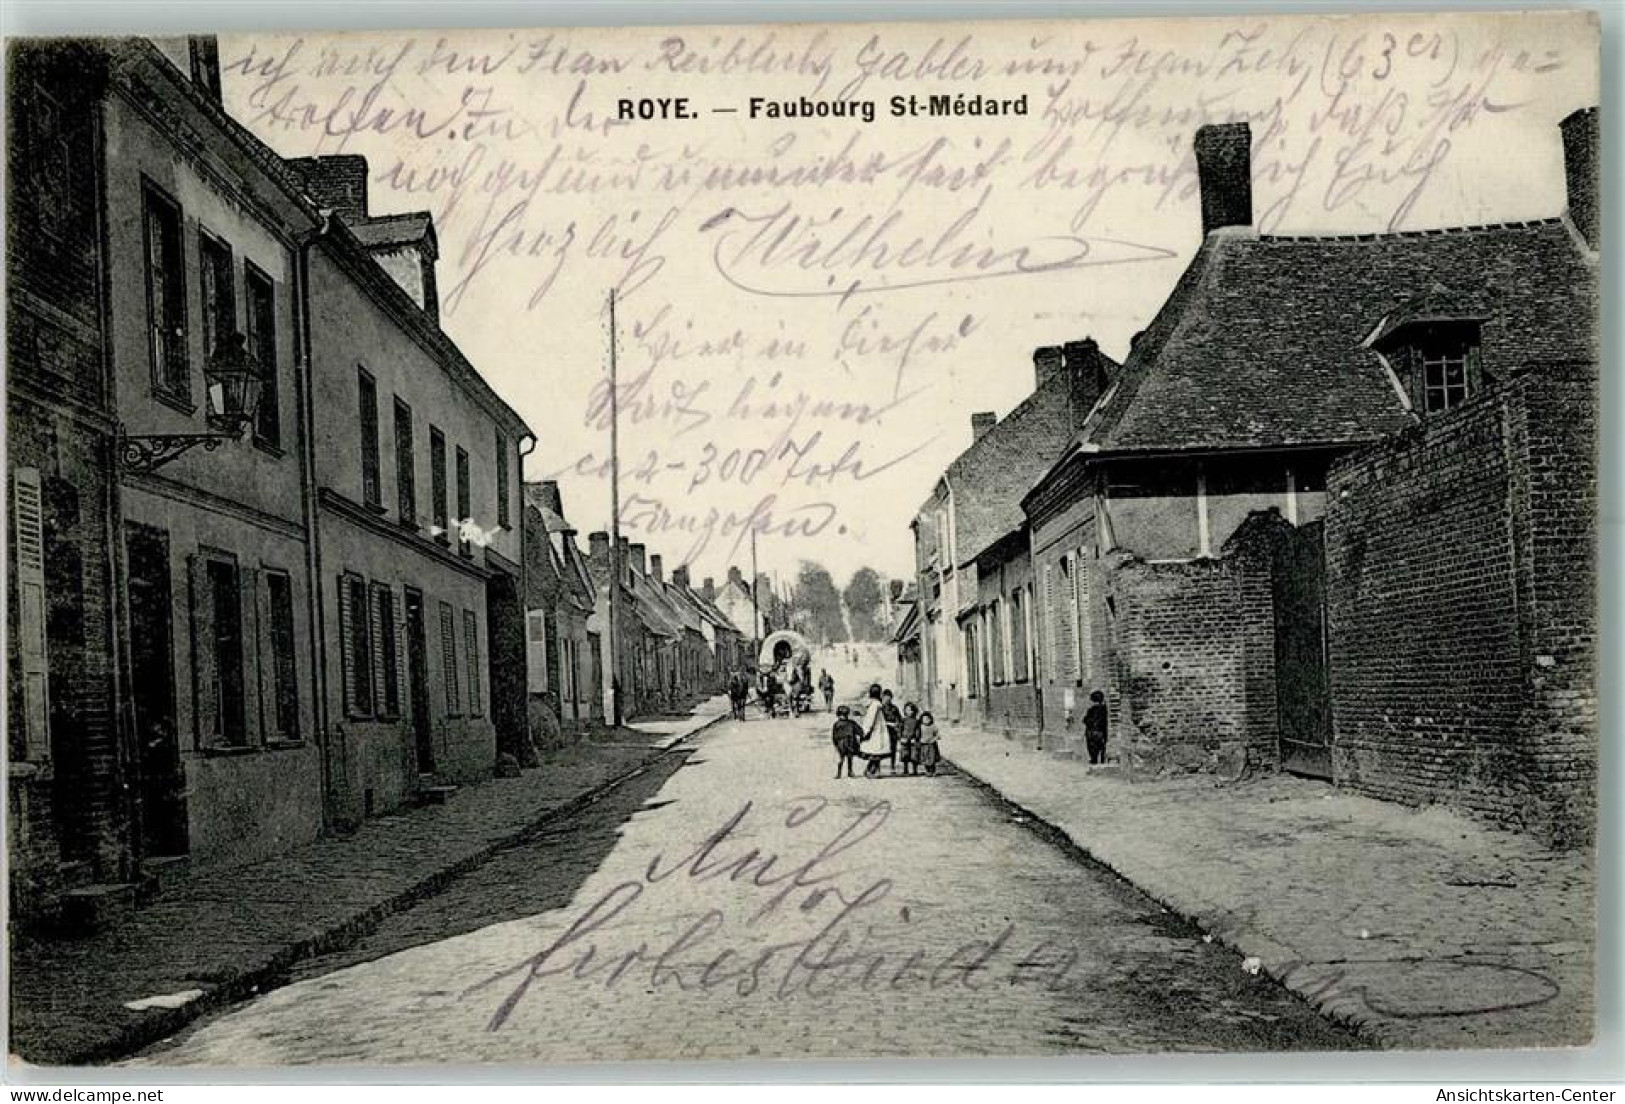 ich auch den Jean Reiblich, Gabler und Jean Zeh, (63er) ge-
troffen. In der Hoffnung, daß Ihr
noch gesund und munter seit, begrüß ich Euch
herzlich Wilhelm
ROYE. — Faubourg St-Médard
Hier in dieser
Stadt liegen
ca 2-300 Tote
Franzosen.
Auf
frohes Wiedersehen
Ansichtskarten-Center